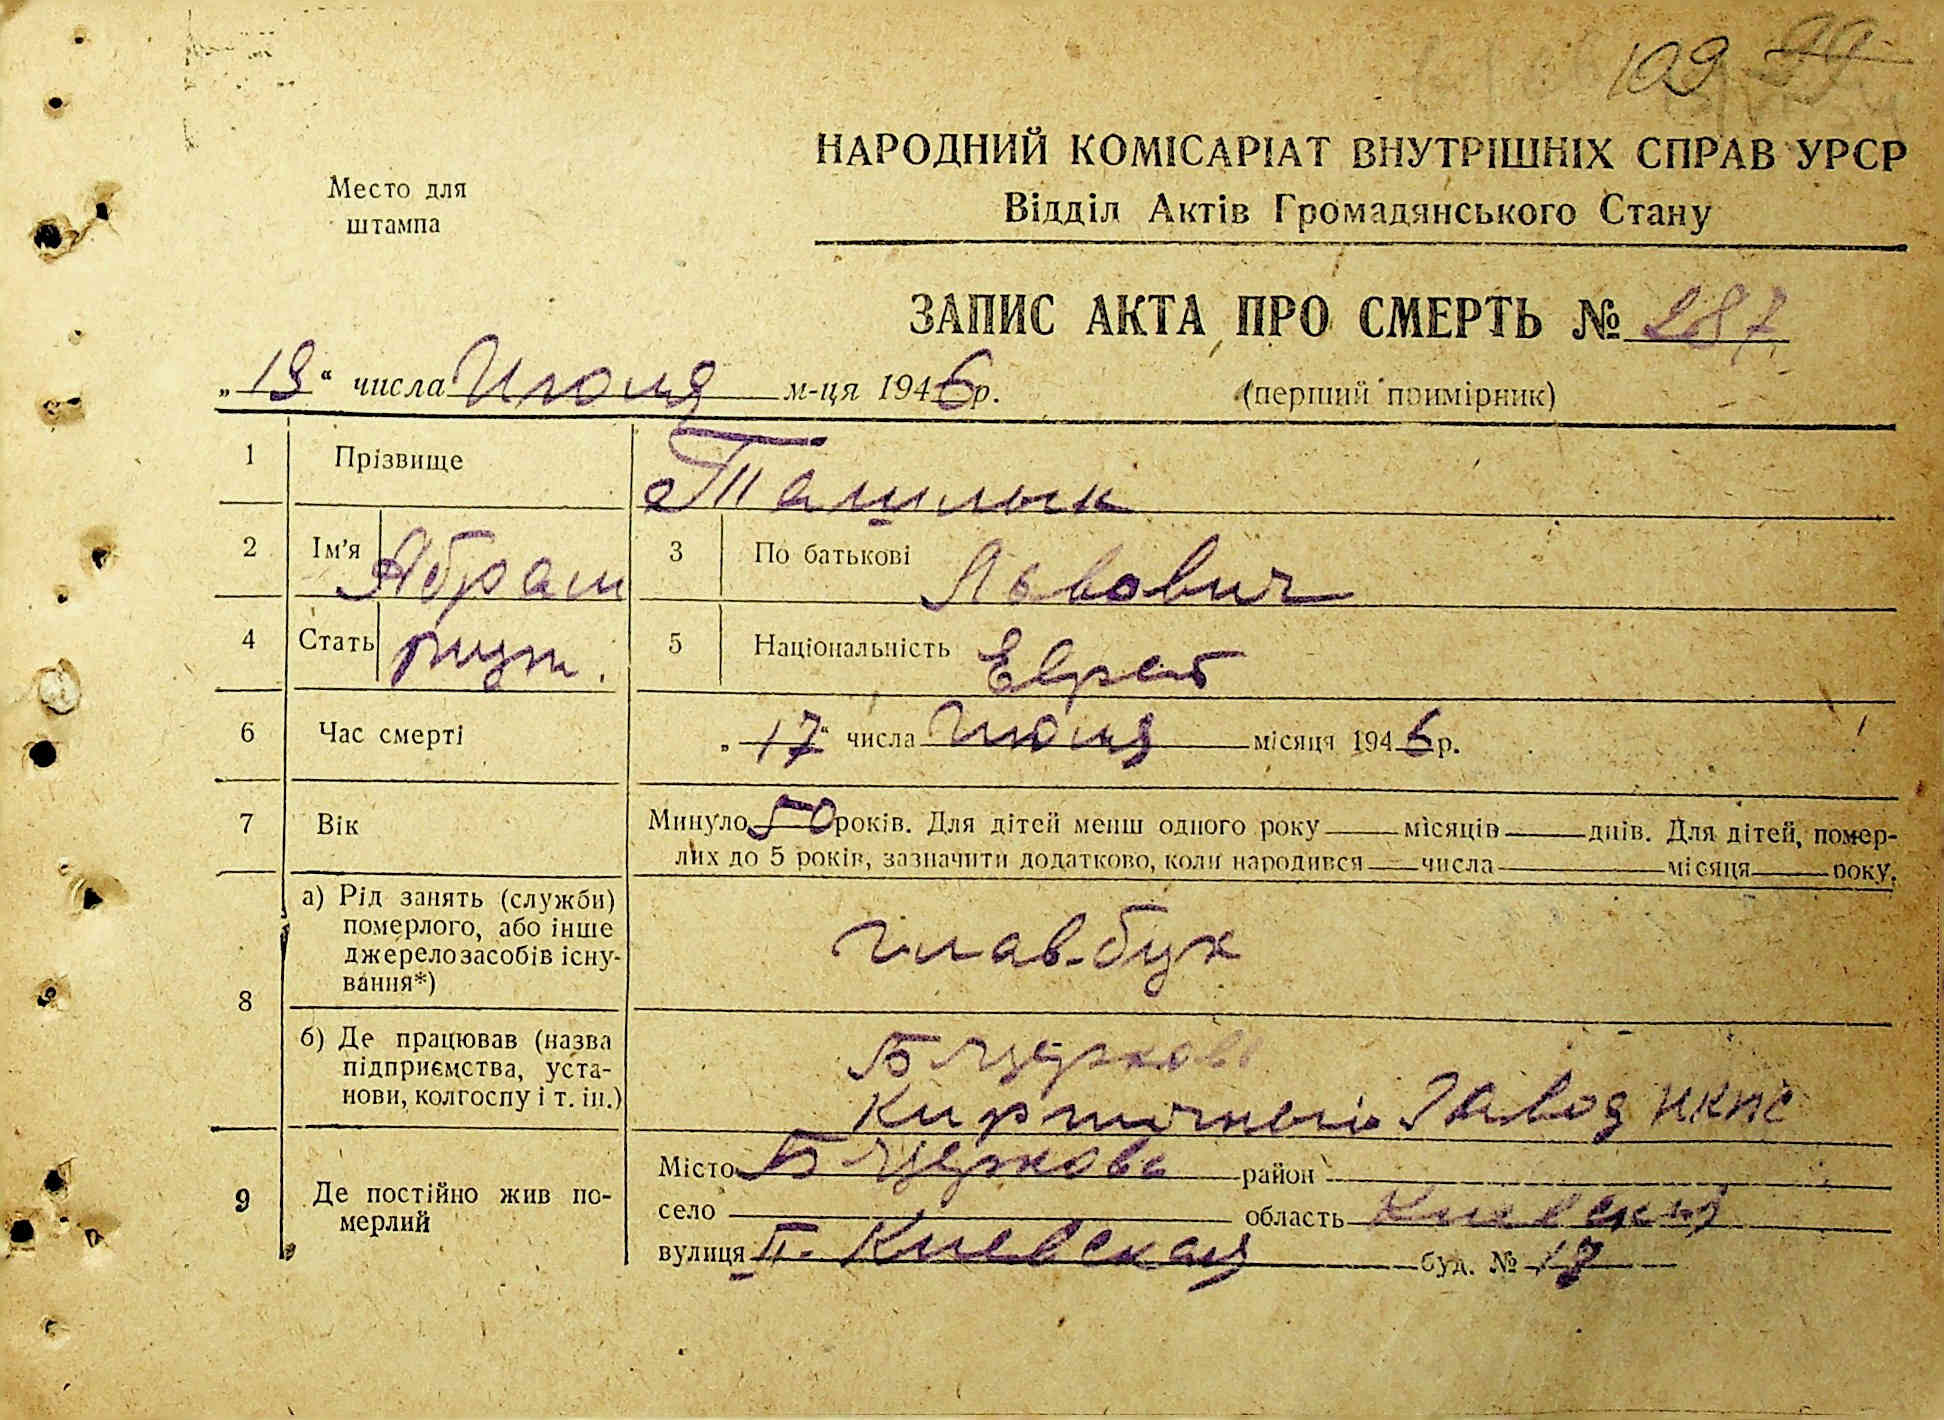 109 99
НАРОДНИЙ КОМІСАРІАТ ВНУТРІШНІХ СПРАВ УРСР
Відділ Актів Громадянського Стану
Место для
штампа
ЗАПИС АКТА ПРО СМЕРТЬ № 287
„19“ числа Июля м-ця 1946 р.
(перший примірник)
1 Прізвище Ташлык
2 Ім'я Абрам 3 По батькові Львович
4 Стать муж. 5 Національність Еврей
6 Час смерті „17“ числа Июля місяця 1946 р.
7 Вік Минуло 50 років. Для дітей менш одного року місяців днів. Для дітей, помер-
лих до 5 років, зазначити додатково, коли народився числа місяця року.
8 а) Рід занять (служби)
померлого, або інше
джерело засобів існу-
вання*)
глав-бух
б) Де працював (назва
підприємства, уста-
нови, колгоспу і т. ін.)
Б Церковь
Кирпичный Завод НКПС
9 Де постійно жив по-
мерлий
Місто Б Церковь район
село область Киевская
вулиця П. Киевская буд. № 17